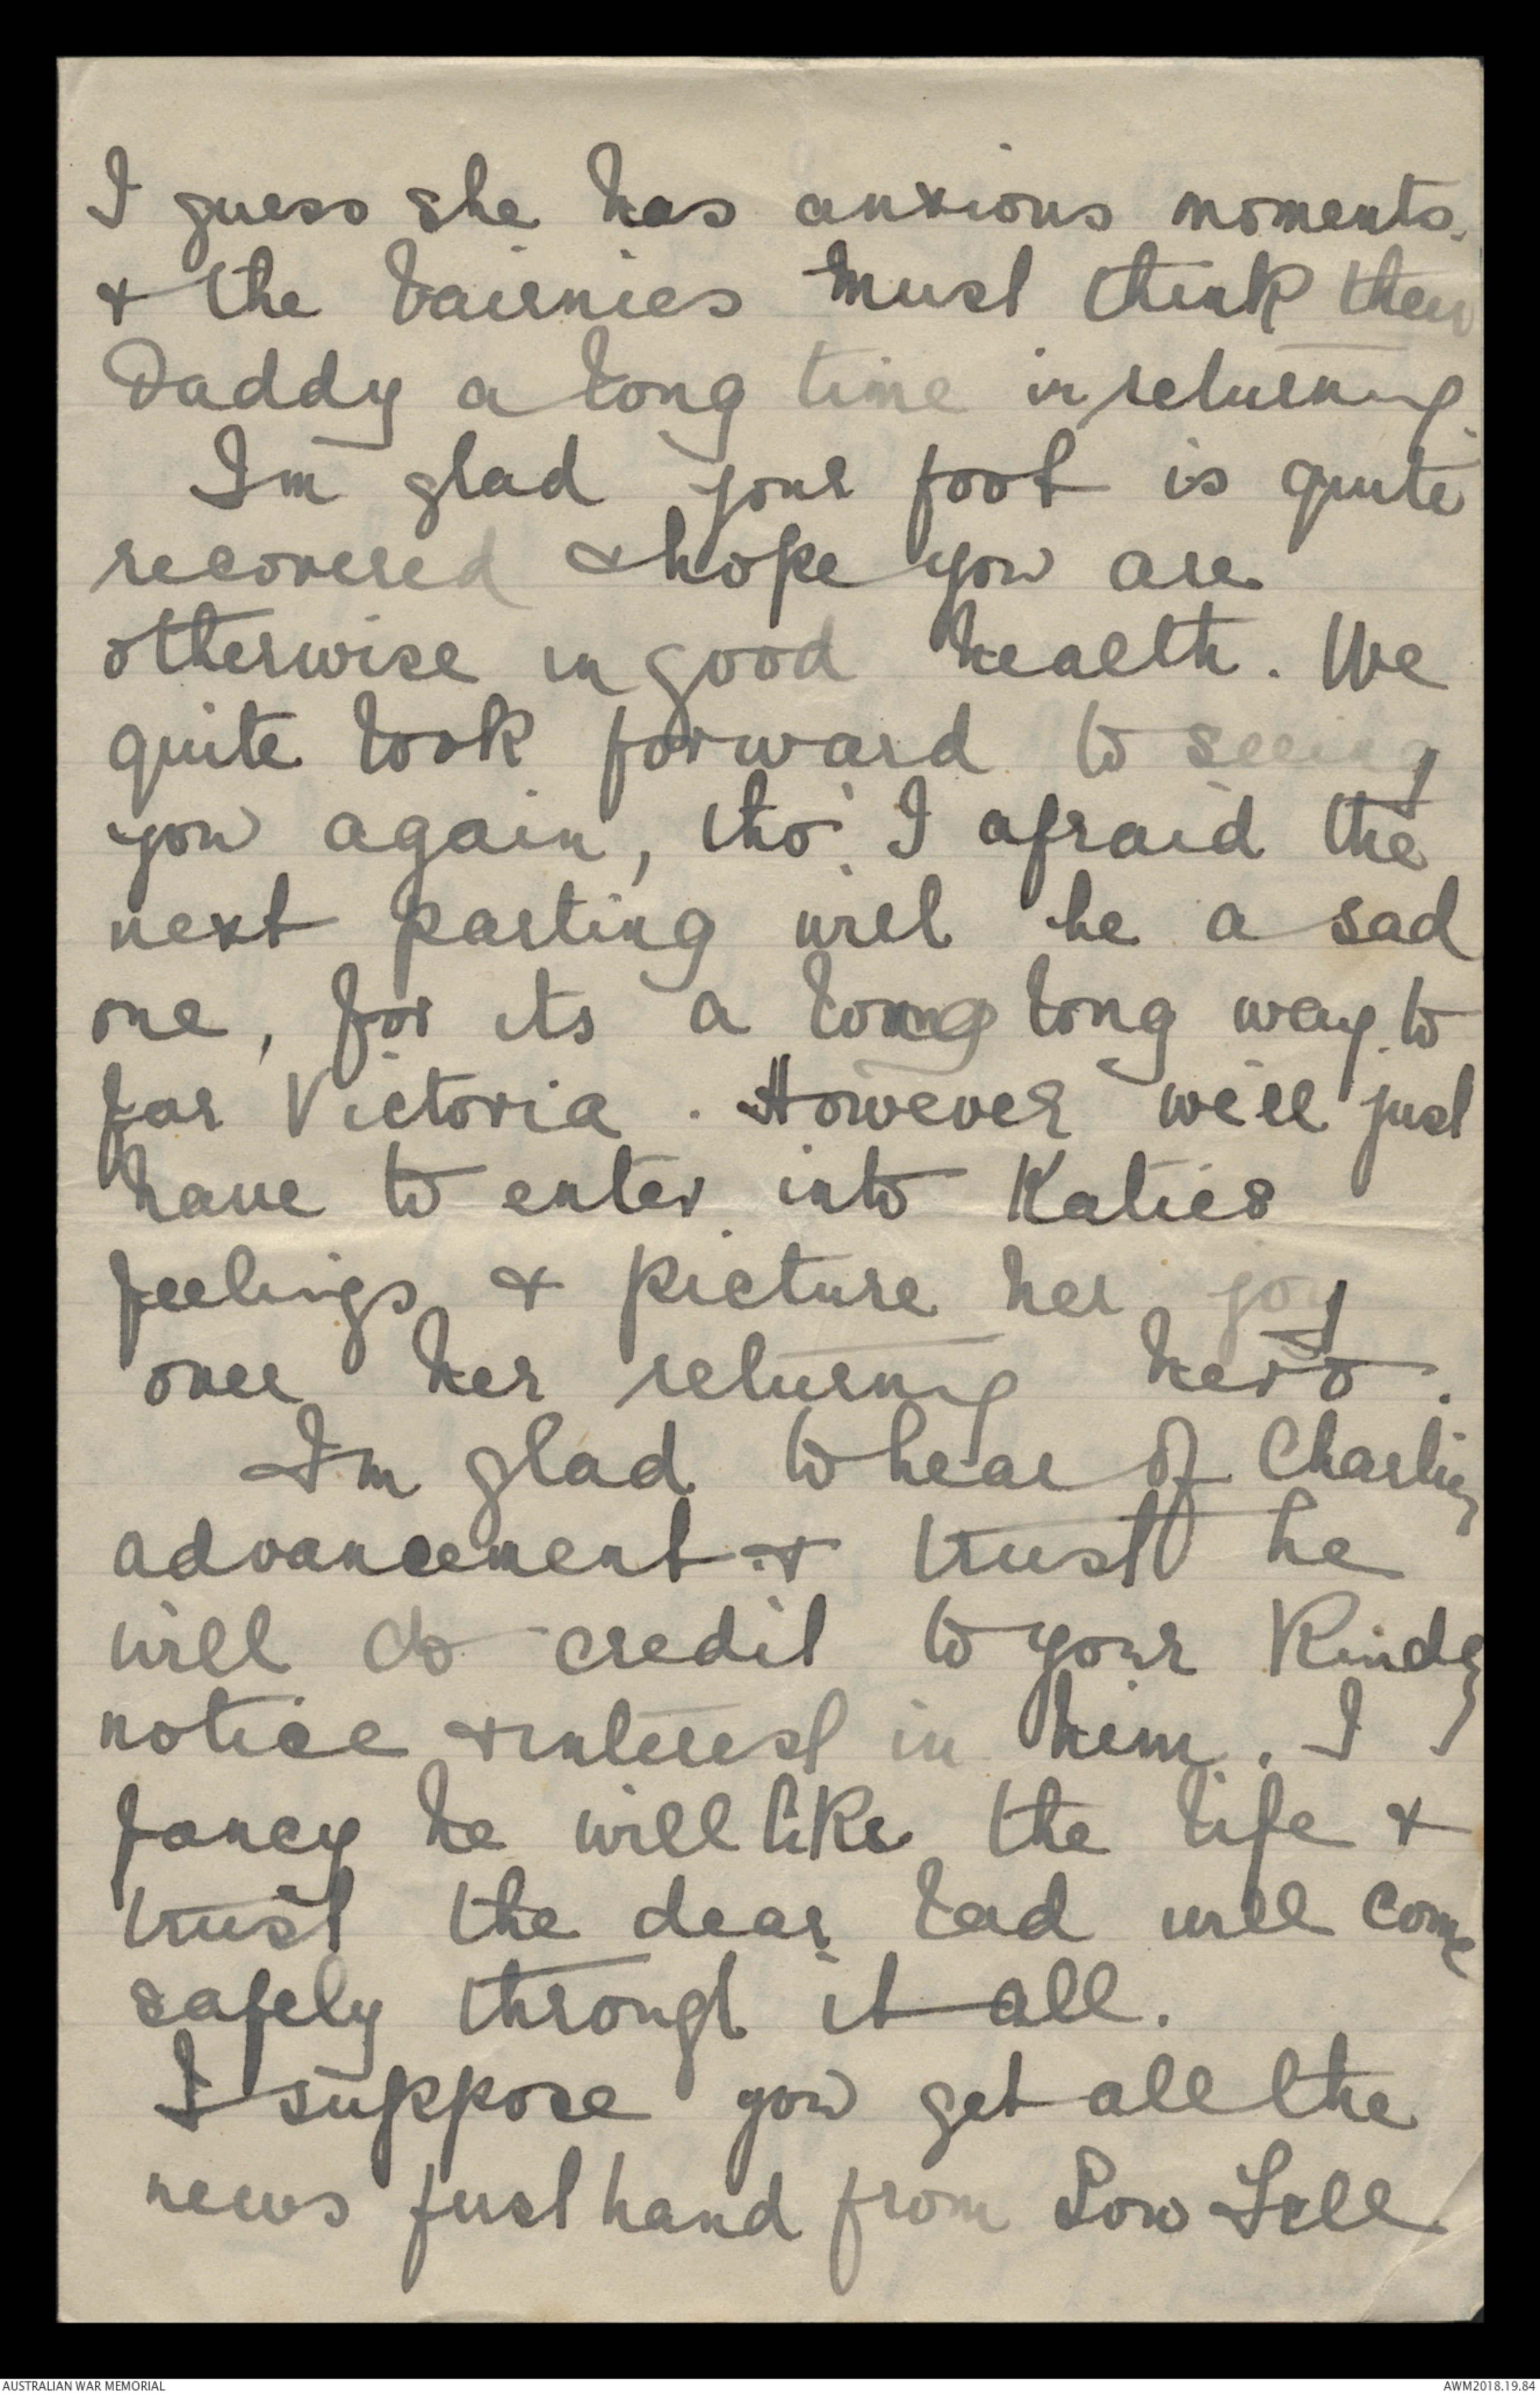 I guess she has anxious moments.
& the bairnies must think their
Daddy a long time in returning.
Im glad your foot is quite
recovered & hope you are
otherwise in good health. We
quite look forward to seeing
you again, tho' I afraid the
next parting will be a sad
one, for its a long long way to
far Victoria. However we'll just
have to enter into Katies
feelings & picture her joy
over her returning hero.
Im glad to hear of Charlies
advancement & trust he
will do credit to your kindly
notice & interest in him. I
fancy he will like the life &
trust the dear lad will come
safely through it all.
I suppose you get all the
news first hand from Low Fell
AUSTRALIAN WAR MEMORIAL
AWM2018.19.84